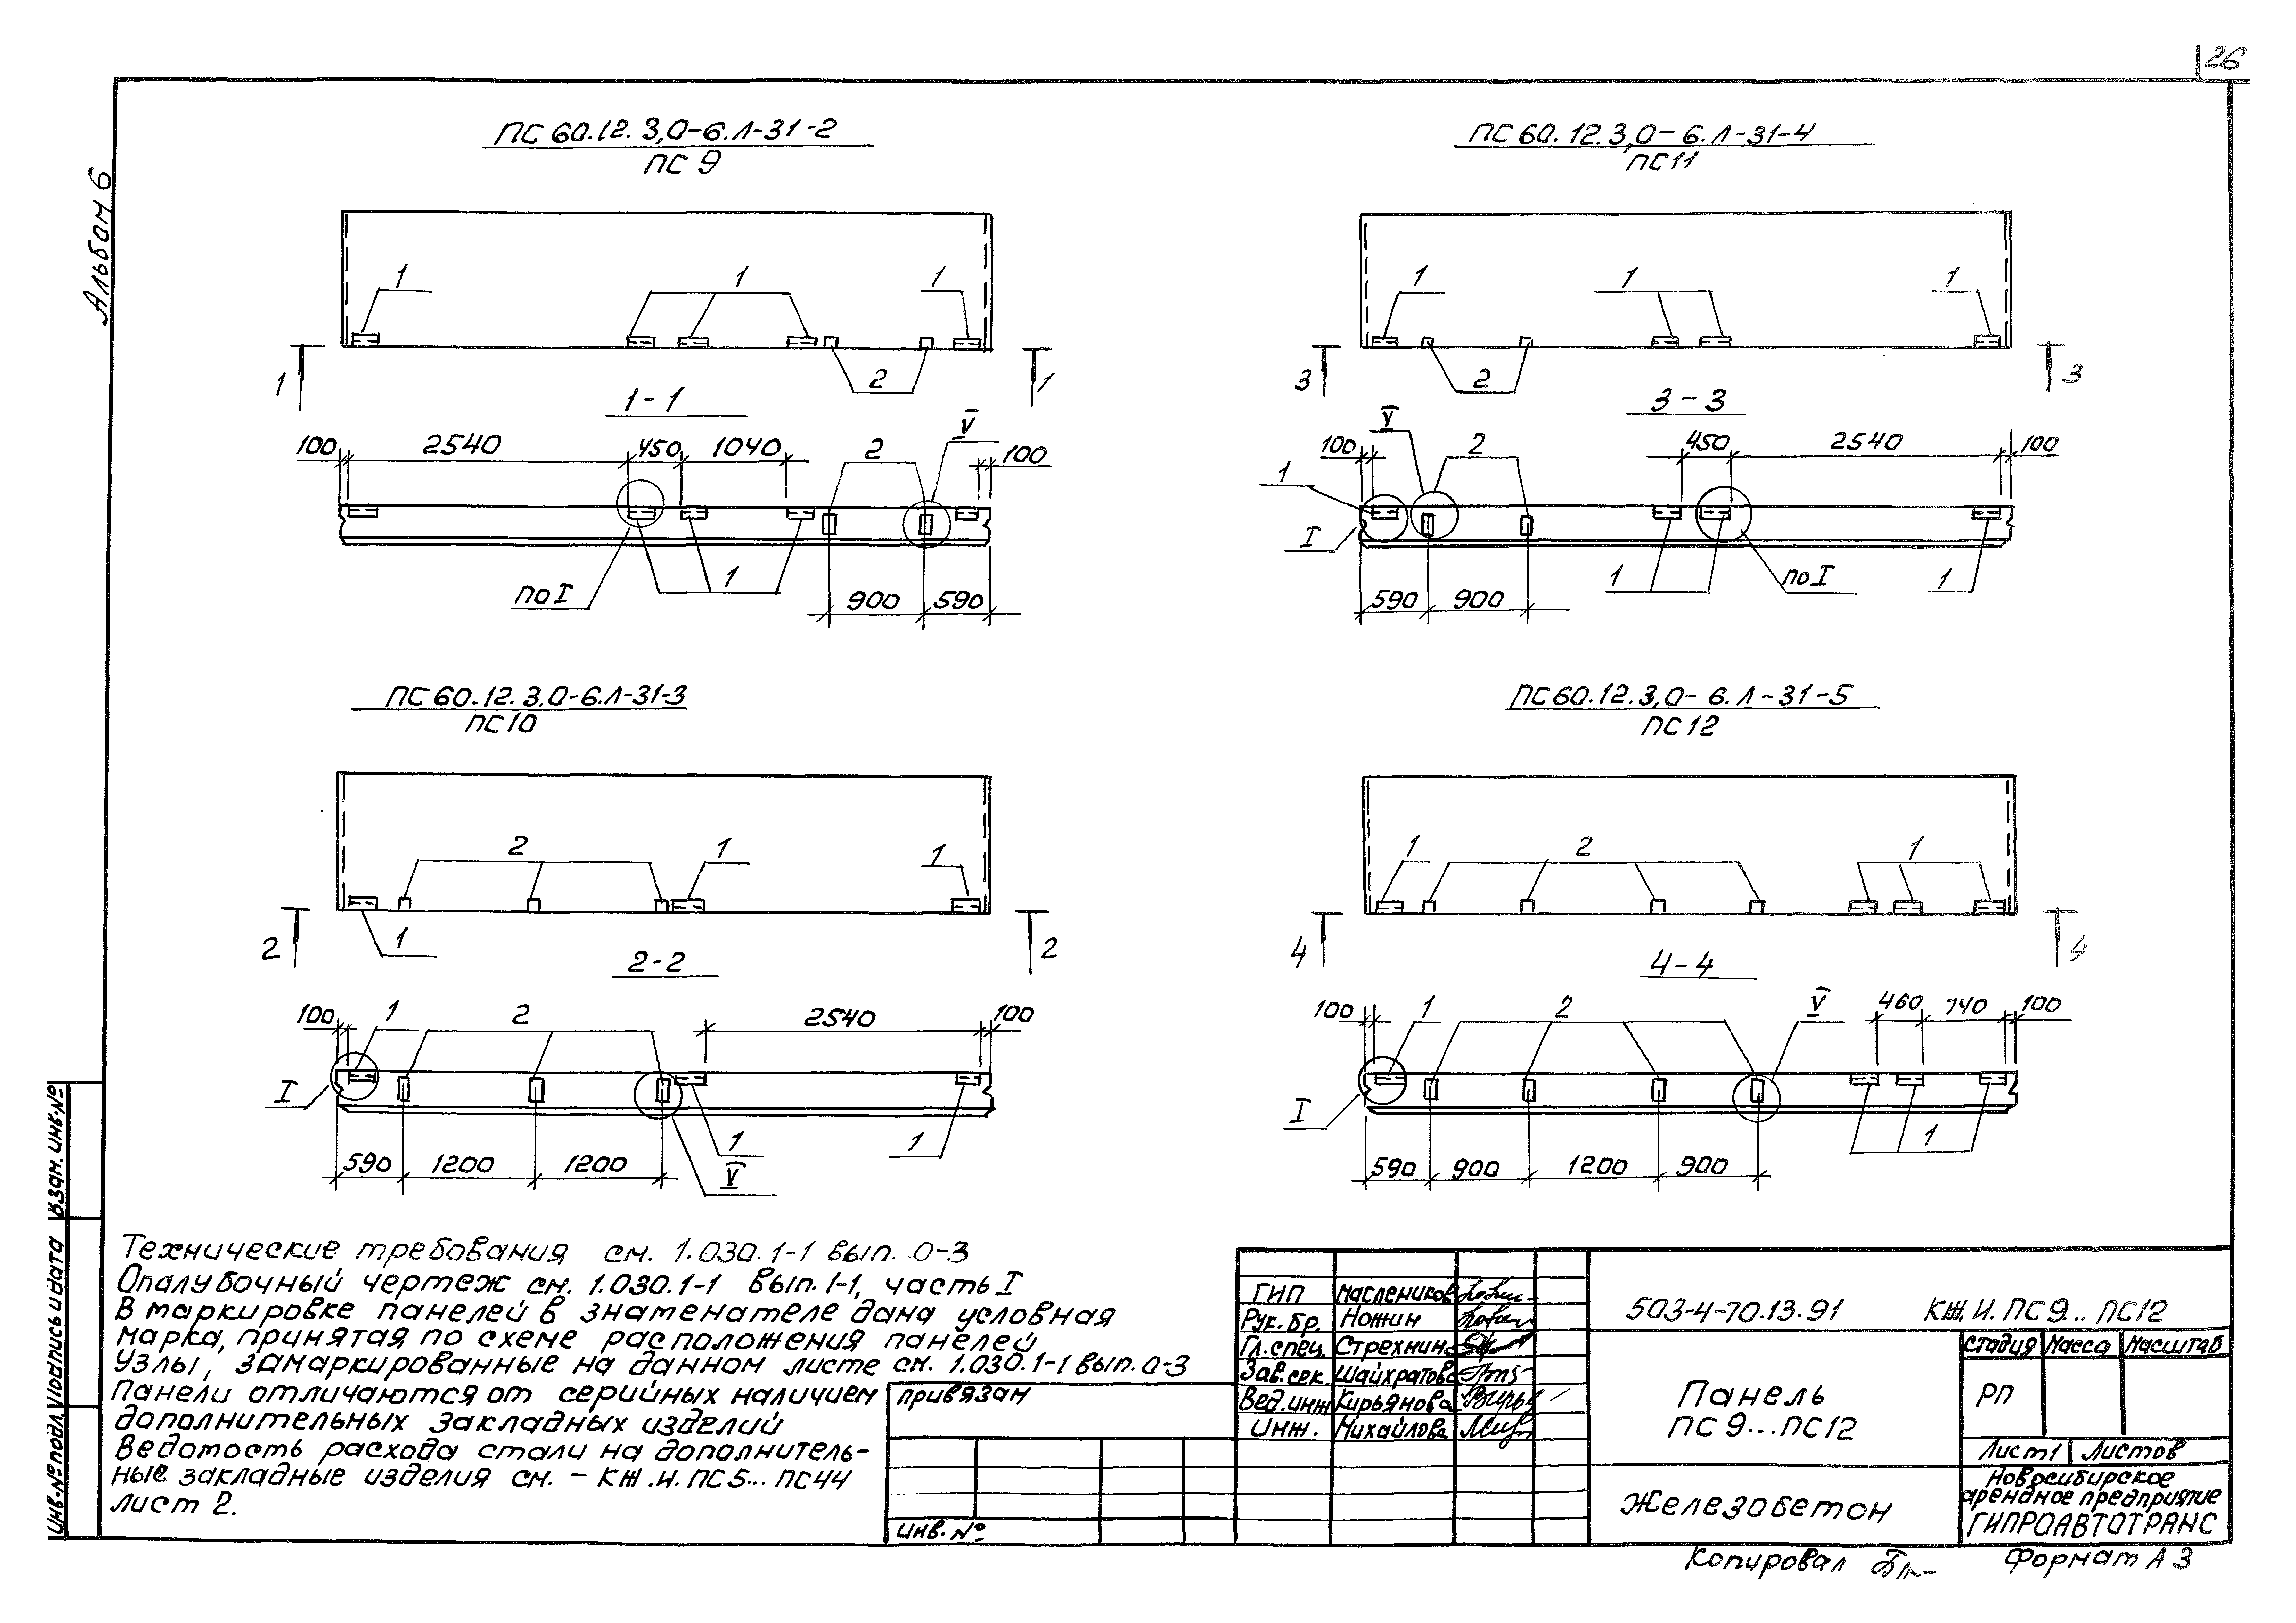 26
Альбом 6
ПС 60.12.3,0-6.Л-31-2
ПС 9
1 1 1
2
1 1
1-1
100 2540 450 1040 2 V 100
по I 1 900 590
ПС 60.12.3,0-6.Л-31-4
ПС11
1 1 1
2
3 3
3-3
100 V 2 450 2540 100
1
I
590 900 1 по I 1
ПС60.12.3,0-6.Л-31-3
ПС10
2 1 1
1
2 2
2-2
100 1 2 2540 100
I
590 1200 1200 1 V 1
ПС60.12.3,0-6.Л-31-5
ПС12
1 2 1
4 4
4-4
100 1 2 V 460 740 100
I
590 900 1200 900 1
Технические требования см. 1.030.1-1 вып. 0-3
Опалубочный чертеж см. 1.030.1-1 вып. 1-1, часть I
В маркировке панелей в знаменателе дана условная
марка, принятая по схеме расположения панелей
Узлы, замаркированные на данном листе см. 1.030.1-1 вып. 0-3
Панели отличаются от серийных наличием
дополнительных закладных изделий
Ведомость расхода стали на дополнитель-
ные закладные изделия см. - КЖ.И.ПС5...ПС44
лист 2.
Инв.№ подл. Подпись и дата Взам. инв.№
Привязан
Инв. №
ГИП Маслеников
Рук. бр. Ножин
Гл. спец. Стрехнин
Зав. сек. Шайхратова
Вед. инж Кирьянова
Инж. Михайлова
503-4-70.13.91 КЖ.И.ПС9...ПС12
Панель
ПС 9...ПС12
Стадия Масса Масштаб
РП
Лист 1 Листов
Железобетон
Новосибирское
арендное предприятие
ГИПРОАВТОТРАНС
Копировал
Формат А3